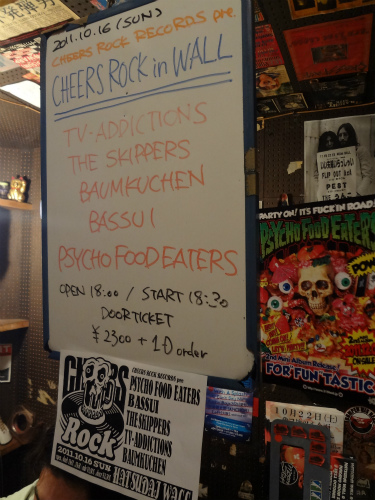 2011.10.16 (SUN)
CHEERS ROCK RECORDS pre.
CHEERS ROCK in WALL
TV-ADDICTIONS
THE SKIPPERS
BAUMKUCHEN
BASSUI
PSYCHO FOOD EATERS
OPEN 18:00 / START 18:30
DOOR TICKET
¥2300 + 1D order
CHEERS
Rock
CHEERS ROCK RECORDS pre.
PSYCHO FOOD EATERS
BASSUI
THE SKIPPERS
TV-ADDICTIONS
BAUMKUCHEN
2011.10.16 SUN
FLIP OUT BOY
PEST
PARTY ON! ITS FUCK'IN ROAD
PSYCHO FOOD EATERS
2nd Mini Album Release!
FOR FUN TASTIC
10月22日(日)